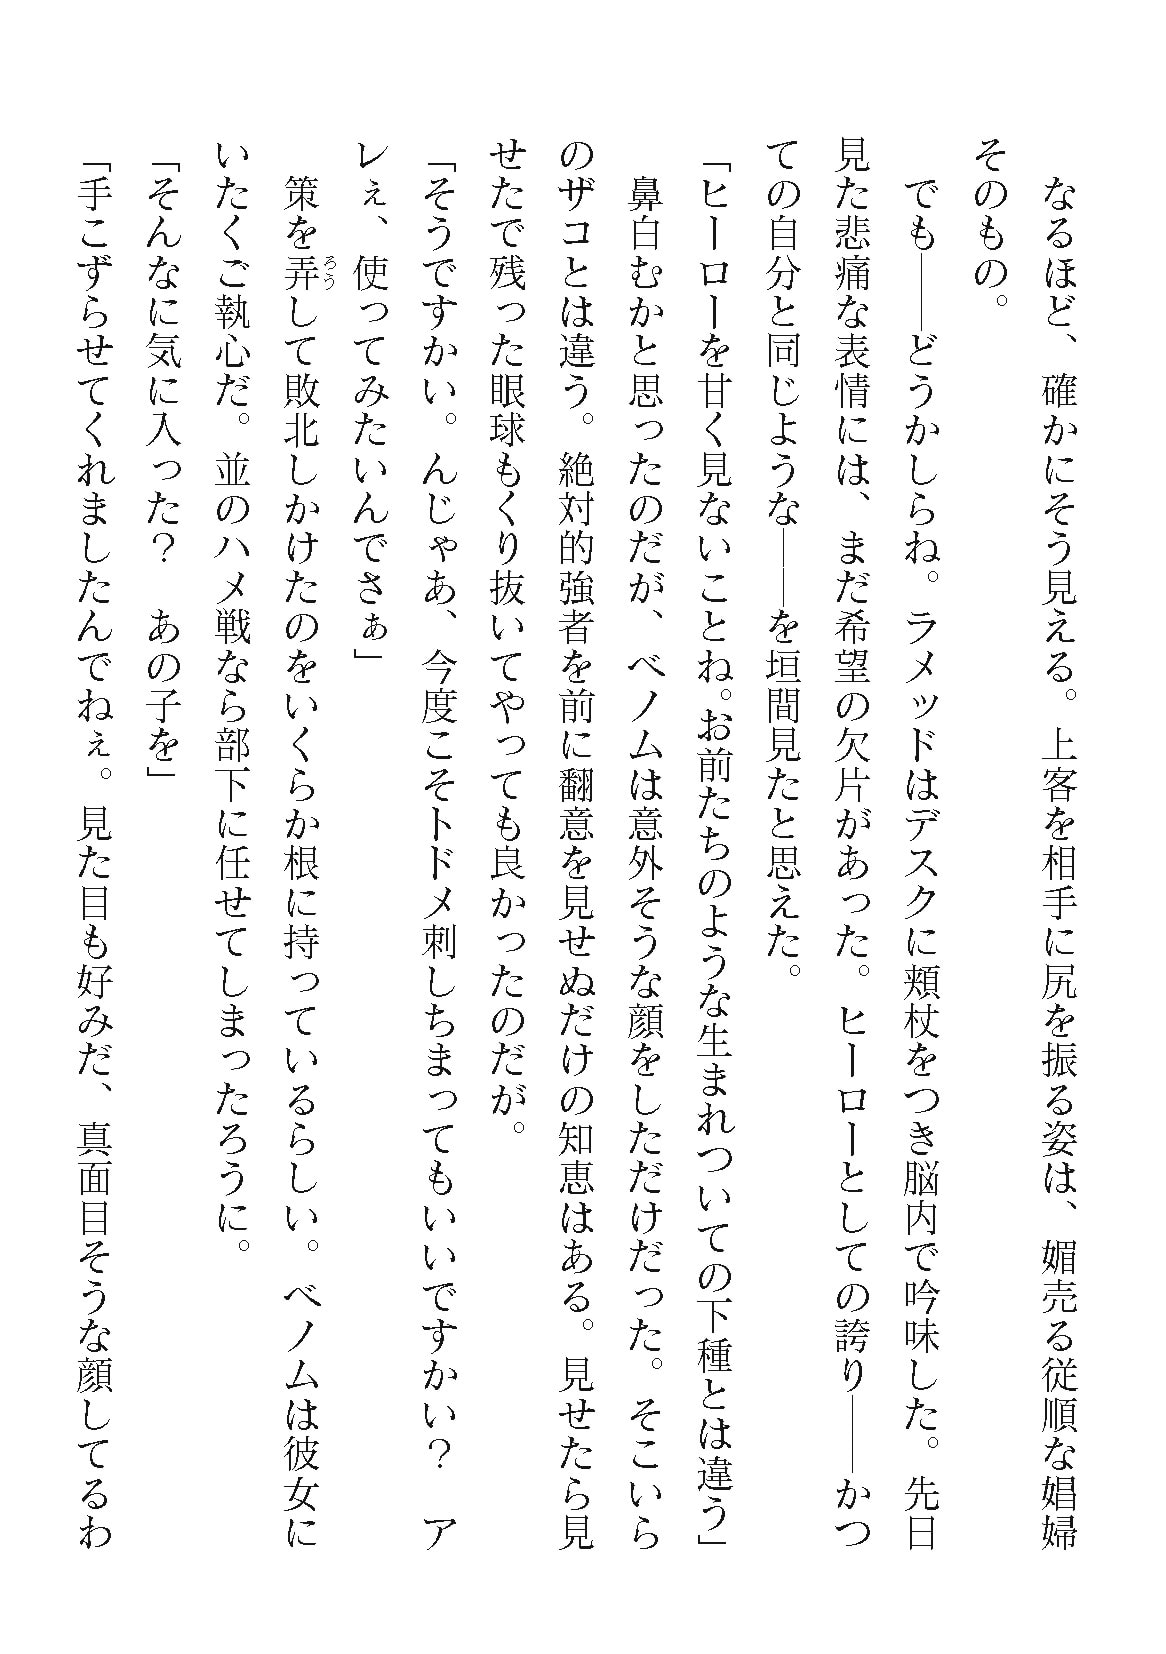 なるほど、確かにそう見える。上客を相手に尻を振る姿は、媚売る従順な娼婦
そのもの。
　でも――どうかしらね。ラメッドはデスクに頬杖をつき脳内で吟味した。先日
見た悲痛な表情には、まだ希望の欠片があった。ヒーローとしての誇り――かつ
ての自分と同じような――を垣間見たと思えた。
「ヒーローを甘く見ないことね。お前たちのような生まれついての下種とは違う」
　鼻白むかと思ったのだが、ベノムは意外そうな顔をしただけだった。そこいら
のザコとは違う。絶対的強者を前に翻意を見せぬだけの知恵はある。見せたら見
せたで残った眼球もくり抜いてやっても良かったのだが。
「そうですかい。んじゃあ、今度こそトドメ刺しちまってもいいですかい？　ア
レぇ、使ってみたいんでさぁ」
　策を弄ろうして敗北しかけたのをいくらか根に持っているらしい。ベノムは彼女に
いたくご執心だ。並のハメ戦なら部下に任せてしまったろうに。
「そんなに気に入った？　あの子を」
「手こずらせてくれましたんでねぇ。見た目も好みだ、真面目そうな顔してるわ